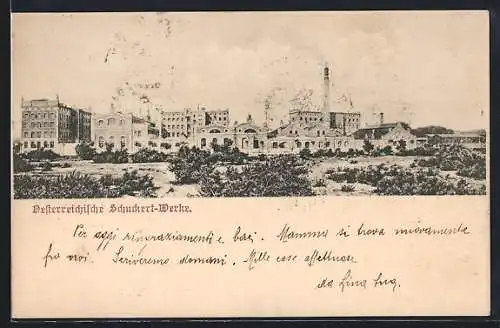 Oesterreichische Schuckert-Werke.
Per oggi ringraziamenti e baci. Mamma si trova nuovamente
fra noi. Scriveremo domani. Mille cose affettuose
da Lina tua.